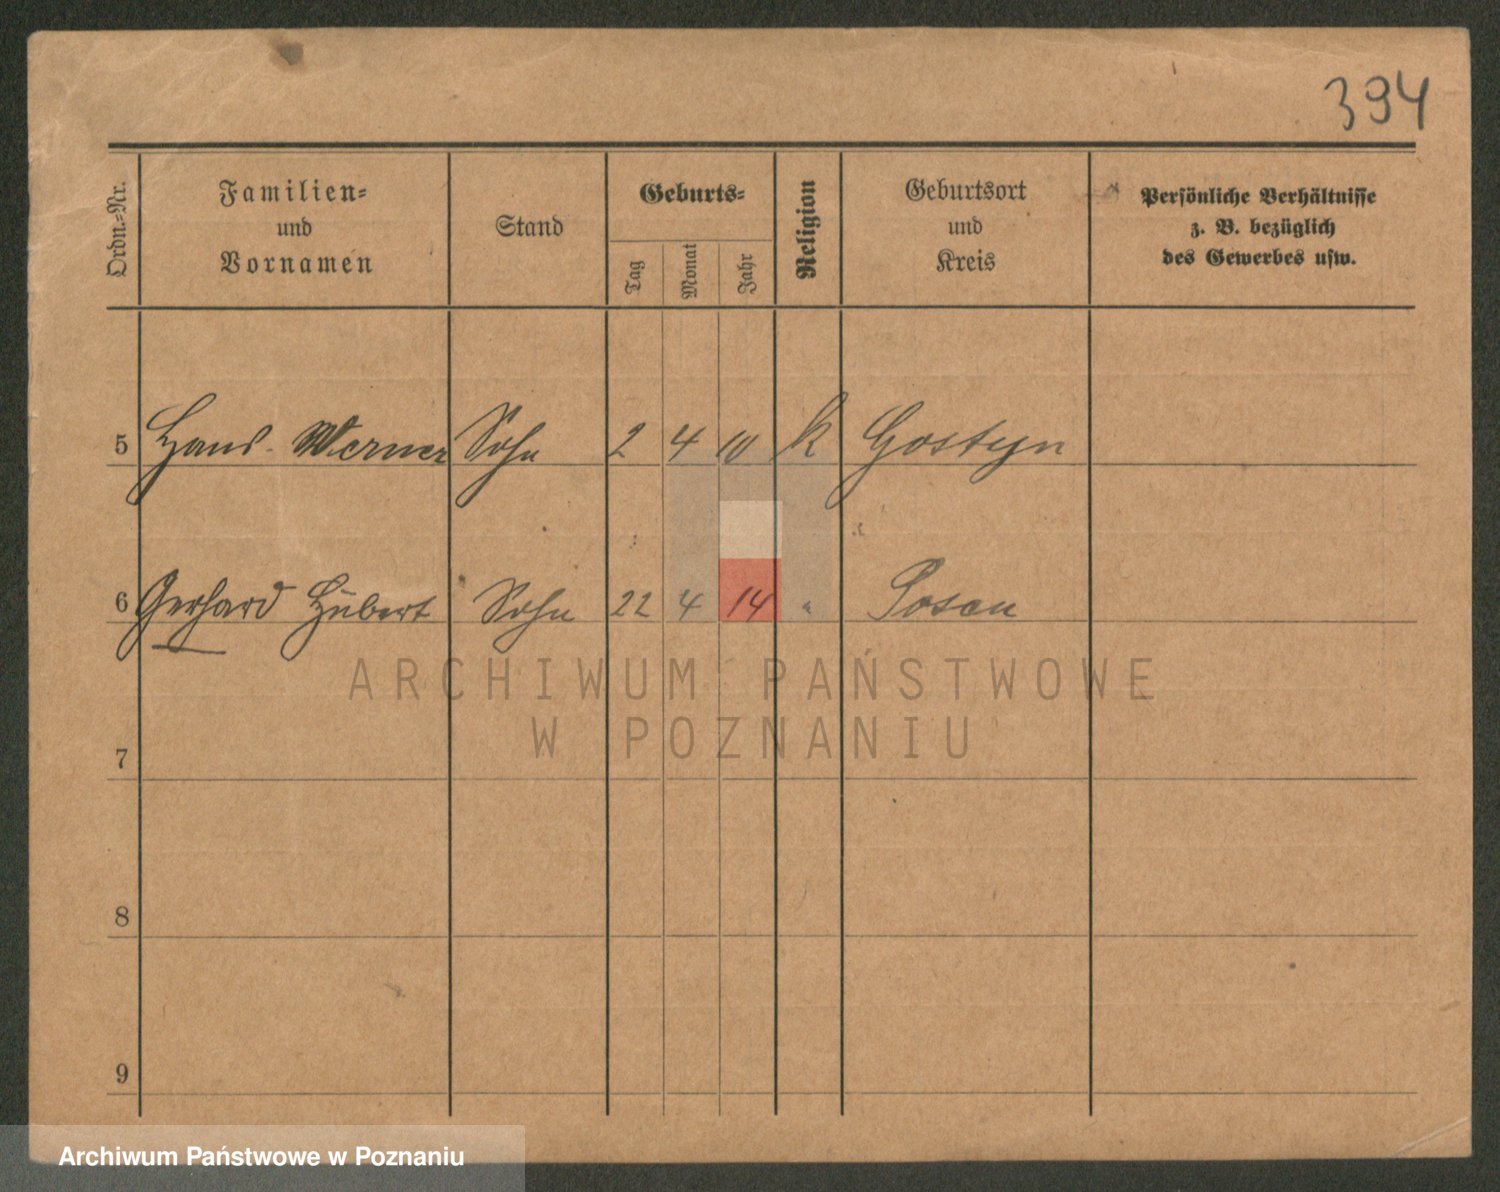 394
Ordn.-Nr.
Familien-
und
Vornamen
Stand
Geburts-
Tag
Monat
Jahr
Religion
Geburtsort
und
Kreis
Persönliche Verhältnisse
z. B. bezüglich
des Gewerbes usw.
5 Hans-Werner Sohn 2 4 10 k Gostyn
6 Gerhard Hubert Sohn 22 4 14 " Posen
ARCHIWUM PAŃSTWOWE
W POZNANIU
7
8
9
Archiwum Państwowe w Poznaniu